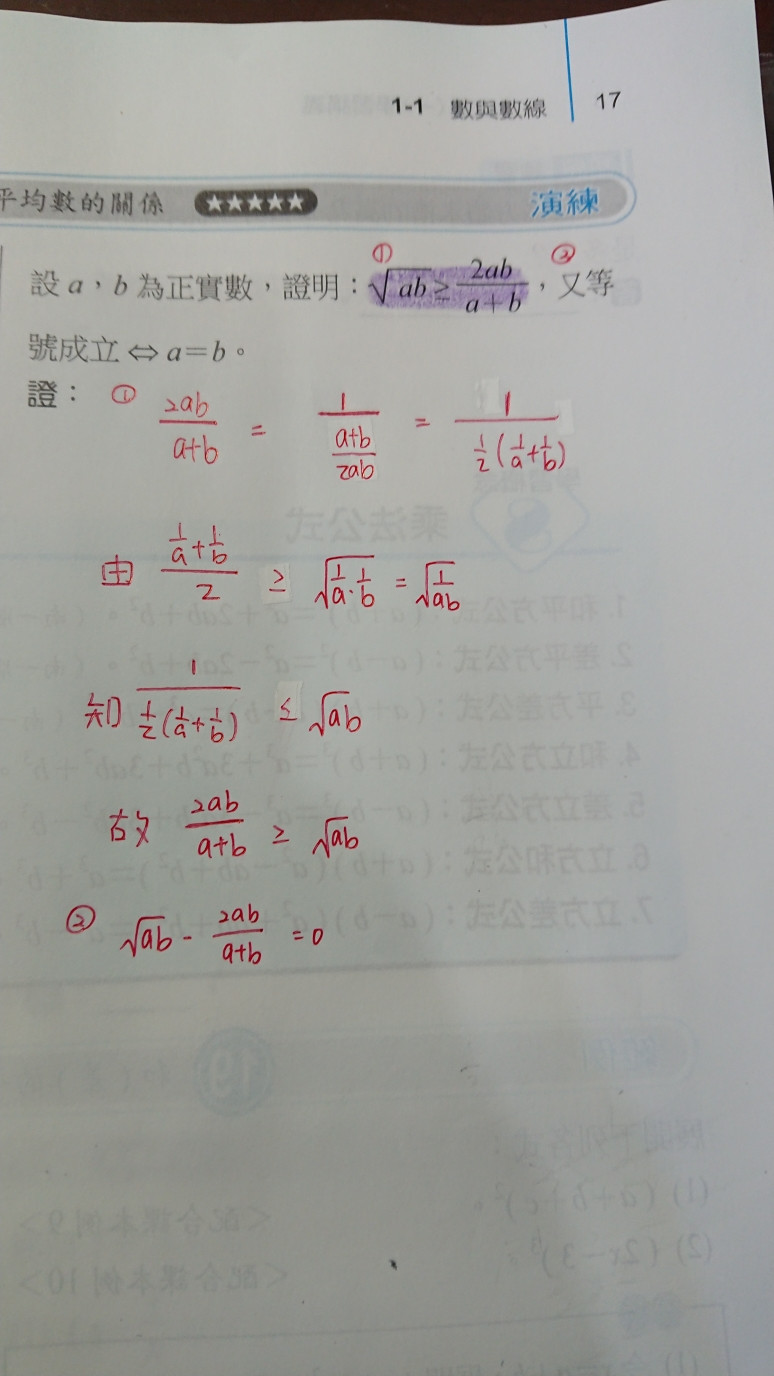 1-1 數與數線 17
平均數的關係 ★★★★★ 演練
① ②
設 a,b 為正實數,證明:√ab ≥ 2ab/(a+b),又等
號成立 ⇔ a=b。
證: ① 2ab/(a+b) = 1/((a+b)/2ab) = 1/(½(1/a+1/b))
由 (1/a+1/b)/2 ≥ √(1/a·1/b) = √(1/ab)
知 1/(½(1/a+1/b)) ≤ √ab
故 2ab/(a+b) ≥ √ab
② √ab - 2ab/(a+b) = 0